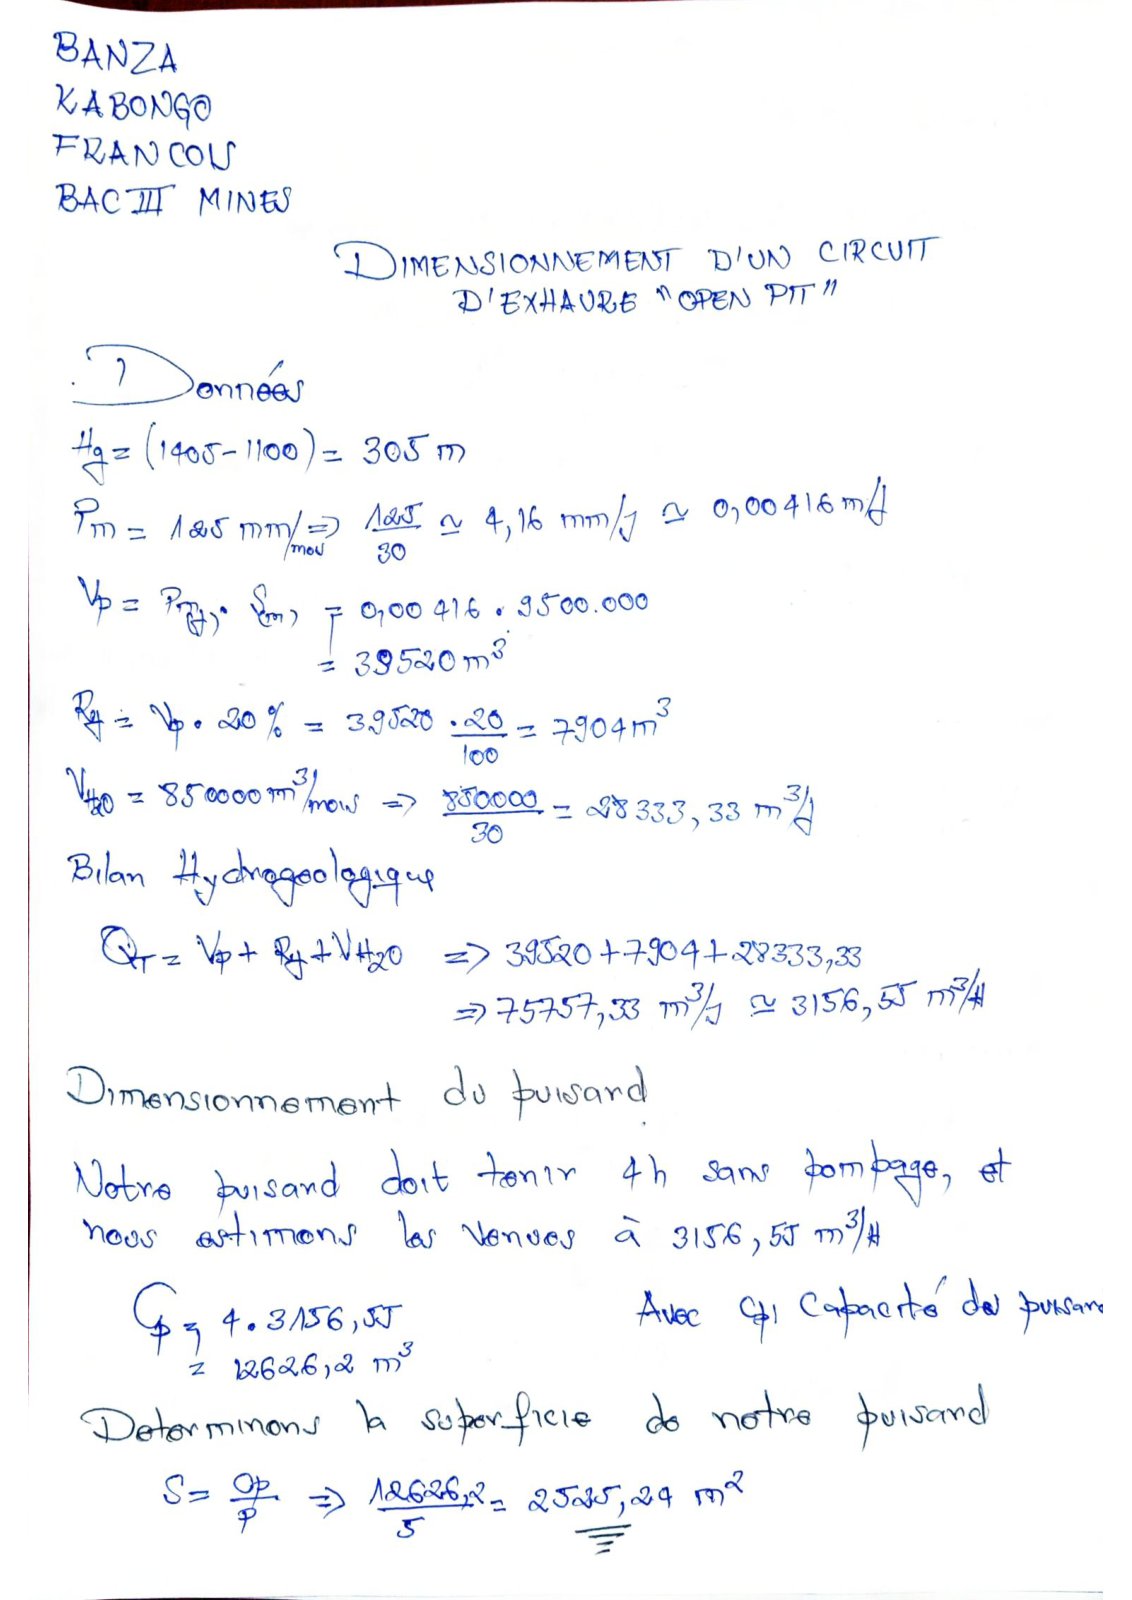 BANZA
KABONGO
FRANCOIS
BAC III MINES
DIMENSIONNEMENT D'UN CIRCUIT
D'EXHAURE "OPEN PIT"
1 Données
Hg = (1405-1100) = 305 m
Pm = 125 mm/mois => 125/30 ≃ 4,16 mm/j ≃ 0,00416 m/j
Vp = P(m/j) . S(m) = 0,00416 . 9500.000
= 39520 m³
Ry = Vp . 20 % = 39520 . 20/100 = 7904 m³
VH2O = 850000 m³/mois => 850000/30 = 28333,33 m³/j
Bilan Hydrogeologique
QT = Vp + Ry + VH2O => 39520 + 7904 + 28333,33
=> 75757,33 m³/j ≃ 3156,55 m³/H
Dimensionnement du puisard
Notre puisard doit tenir 4h sans pompage, et
nous estimons les venues à 3156,55 m³/H
Cp = 4 . 3156,55 Avec Cp, Capacité de puisard
= 12626,2 m³
Determinons la superficie de notre puisard
S = Cp/P => 12626,2/5 = 2525,24 m²